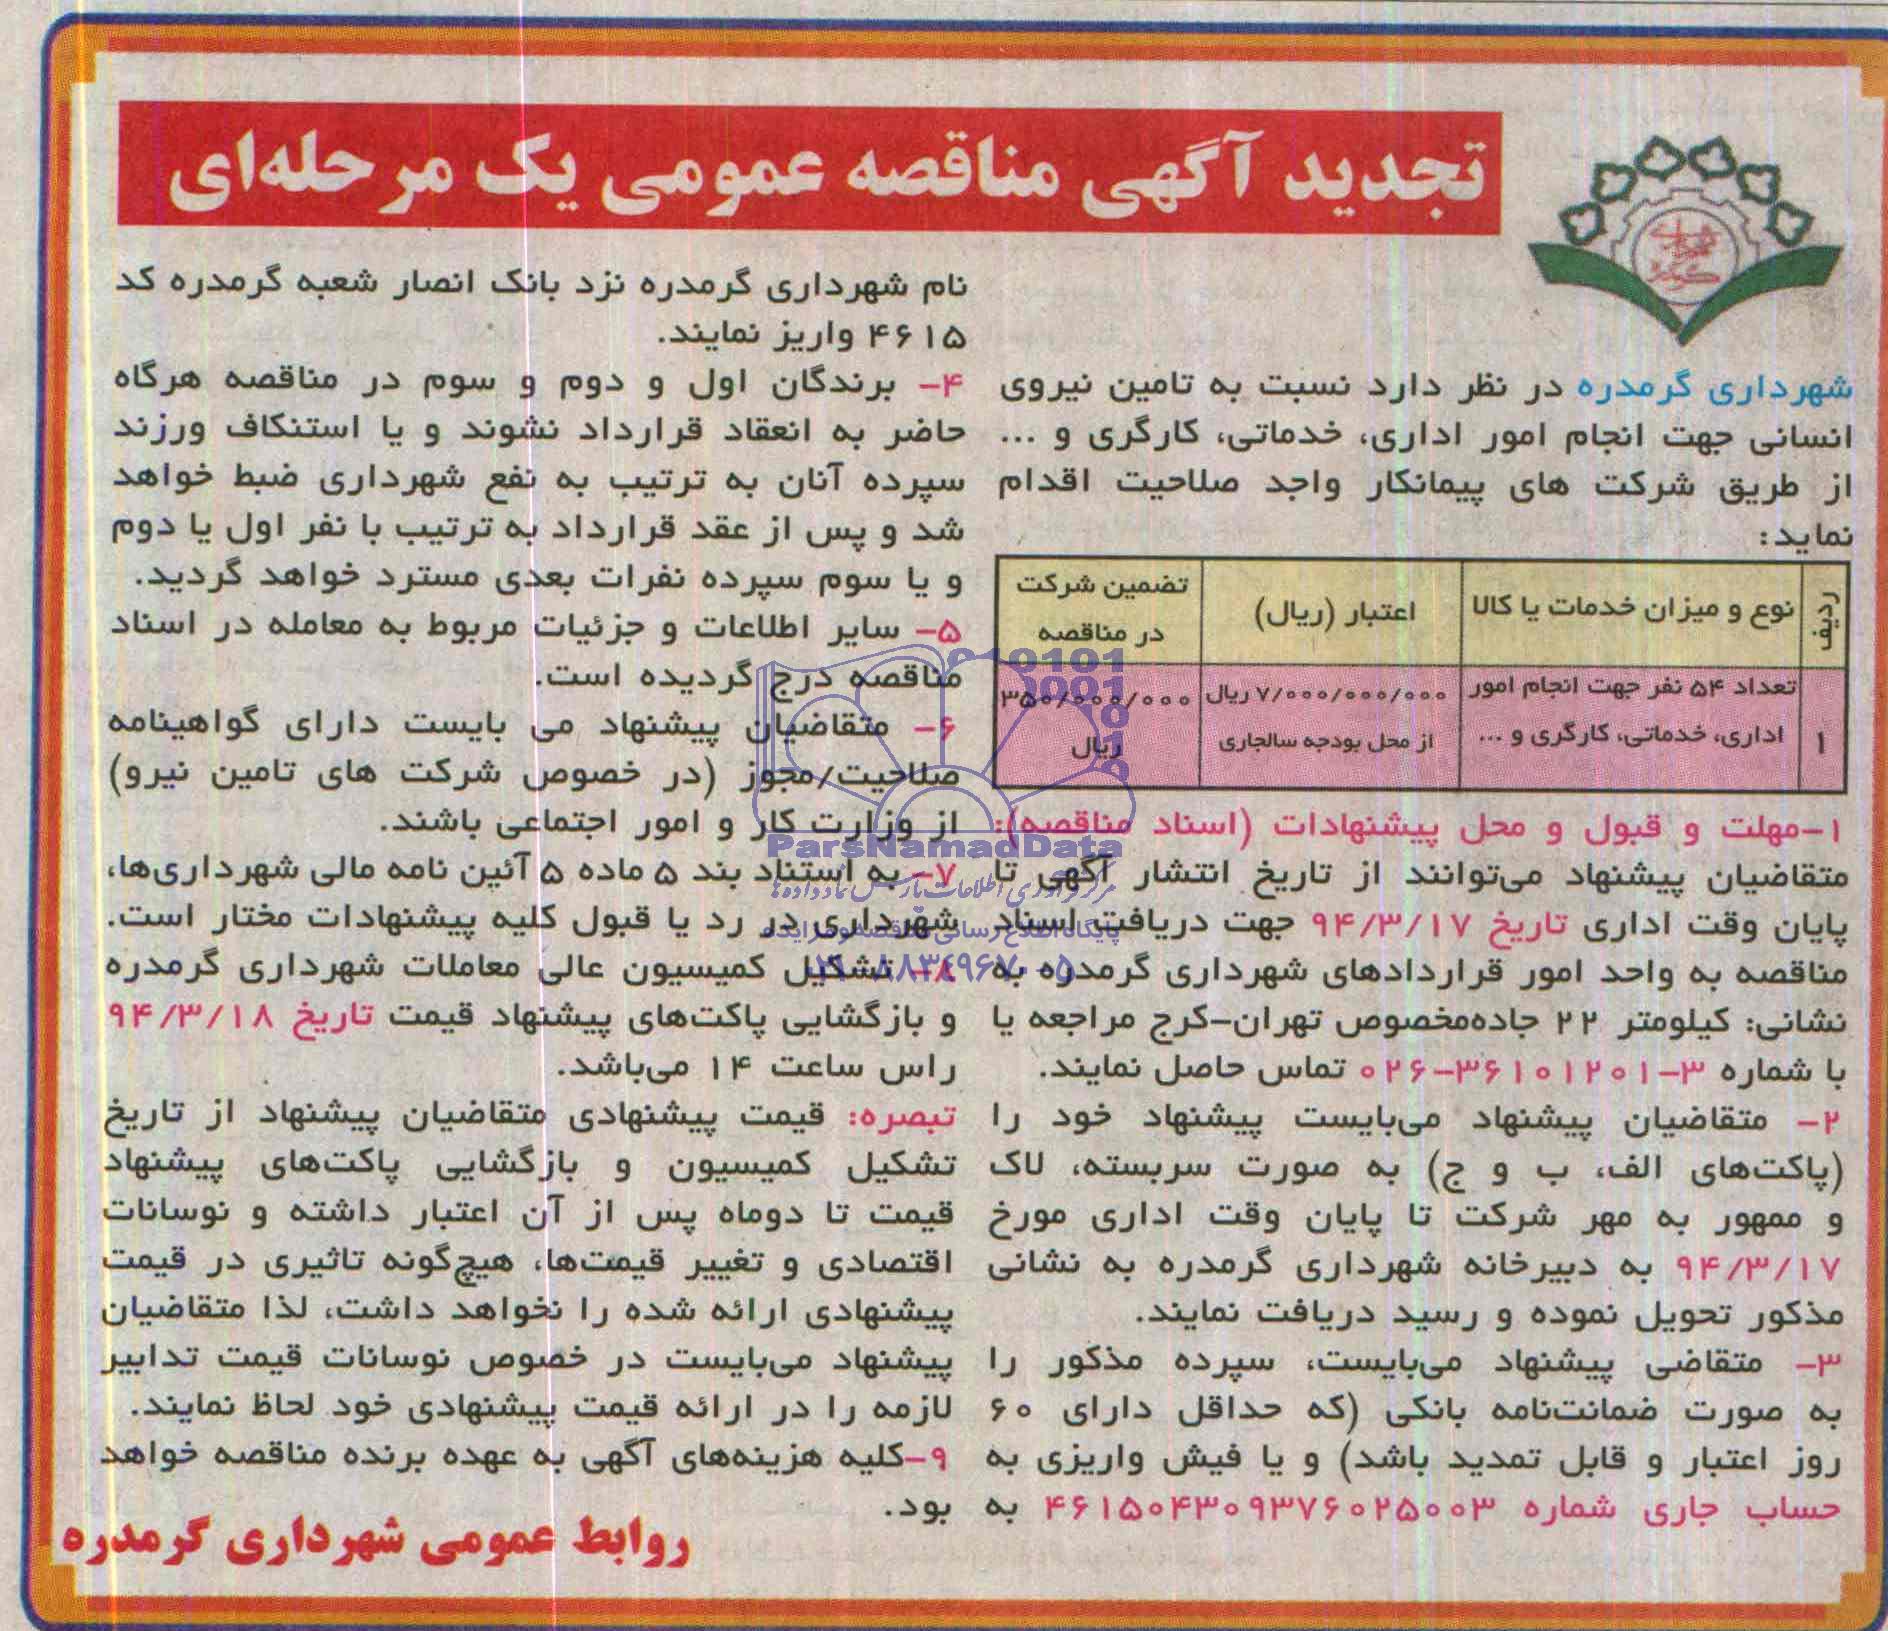 تجدید آگهی مناقصه عمومی یک مرحله‌ای
شهرداری گرمدره در نظر دارد نسبت به تامین نیروی
انسانی جهت انجام امور اداری، خدماتی، کارگری و ...
از طریق شرکت های پیمانکار واجد صلاحیت اقدام
نماید:
ردیف
نوع و میزان خدمات یا کالا
اعتبار (ریال)
تضمین شرکت
در مناقصه
۱
تعداد ۵۴ نفر جهت انجام امور
اداری، خدماتی، کارگری و ...
۷/۰۰۰/۰۰۰/۰۰۰ ریال
از محل بودجه سالجاری
۳۵۰/۰۰۰/۰۰۰
ریال
۱-مهلت و قبول و محل پیشنهادات (اسناد مناقصه):
متقاضیان پیشنهاد می‌توانند از تاریخ انتشار آگهی تا
پایان وقت اداری تاریخ ۹۴/۳/۱۷ جهت دریافت اسناد
مناقصه به واحد امور قراردادهای شهرداری گرمدره به
نشانی: کیلومتر ۲۲ جاده‌مخصوص تهران-کرج مراجعه یا
با شماره ۳-۰۲۶-۳۶۱۰۱۲۰۱ تماس حاصل نمایند.
۲- متقاضیان پیشنهاد می‌بایست پیشنهاد خود را
(پاکت‌های الف، ب و ج) به صورت سربسته، لاک
و ممهور به مهر شرکت تا پایان وقت اداری مورخ
۹۴/۳/۱۷ به دبیرخانه شهرداری گرمدره به نشانی
مذکور تحویل نموده و رسید دریافت نمایند.
۳- متقاضی پیشنهاد می‌بایست، سپرده مذکور را
به صورت ضمانت‌نامه بانکی (که حداقل دارای ۶۰
روز اعتبار و قابل تمدید باشد) و یا فیش واریزی به
حساب جاری شماره ۴۶۱۵۰۴۳۰۹۳۷۶۰۲۵۰۰۳ به
نام شهرداری گرمدره نزد بانک انصار شعبه گرمدره کد
۴۶۱۵ واریز نمایند.
۴- برندگان اول و دوم و سوم در مناقصه هرگاه
حاضر به انعقاد قرارداد نشوند و یا استنکاف ورزند
سپرده آنان به ترتیب به نفع شهرداری ضبط خواهد
شد و پس از عقد قرارداد به ترتیب با نفر اول یا دوم
و یا سوم سپرده نفرات بعدی مسترد خواهد گردید.
۵- سایر اطلاعات و جزئیات مربوط به معامله در اسناد
مناقصه درج گردیده است.
۶- متقاضیان پیشنهاد می بایست دارای گواهینامه
صلاحیت/مجوز (در خصوص شرکت های تامین نیرو)
از وزارت کار و امور اجتماعی باشند.
۷- به استناد بند ۵ ماده ۵ آئین نامه مالی شهرداری‌ها،
شهرداری در رد یا قبول کلیه پیشنهادات مختار است.
۸- تشکیل کمیسیون عالی معاملات شهرداری گرمدره
و بازگشایی پاکت‌های پیشنهاد قیمت تاریخ ۹۴/۳/۱۸
راس ساعت ۱۴ می‌باشد.
تبصره: قیمت پیشنهادی متقاضیان پیشنهاد از تاریخ
تشکیل کمیسیون و بازگشایی پاکت‌های پیشنهاد
قیمت تا دوماه پس از آن اعتبار داشته و نوسانات
اقتصادی و تغییر قیمت‌ها، هیچ‌گونه تاثیری در قیمت
پیشنهادی ارائه شده را نخواهد داشت، لذا متقاضیان
پیشنهاد می‌بایست در خصوص نوسانات قیمت تدابیر
لازمه را در ارائه قیمت پیشنهادی خود لحاظ نمایند.
۹-کلیه هزینه‌های آگهی به عهده برنده مناقصه خواهد
بود.
روابط عمومی شهرداری گرمدره
ParsNamadData
مرکز فرآوری اطلاعات پارس نماد داده‌ها
پایگاه اطلاع رسانی مناقصه و مزایده